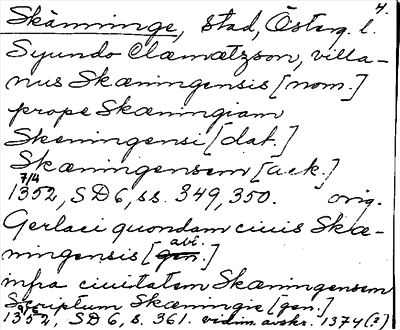 4.
Skänninge, stad, Österg. l.
Syundo Clæmætzson, villa-
nus Skæningensis [nom.]
prope Skæningiam
Skeningensi [dat.]
Skæningensem [ack.]
7/4
1352, SD 6, ss. 349, 350. orig.
Gerlaci quondam ciuis Skæ-
ningensis [gen. abl.]
infra ciuitatem Skæningensem
Scriptum Skæningie [gen.]
1352, SD 6, s. 361. vidim. avskr. 1374(?)